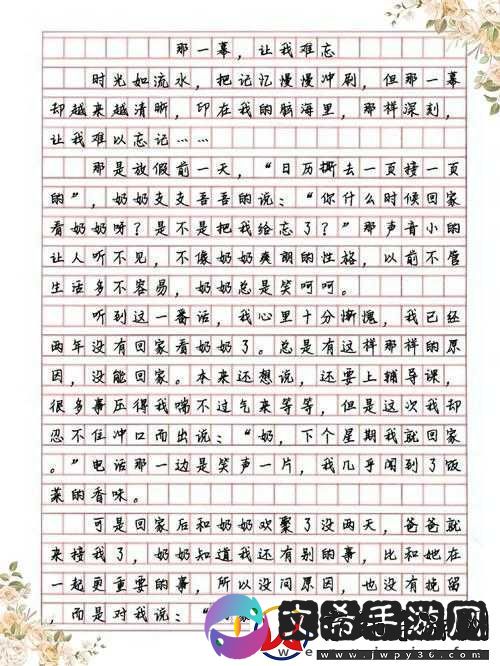 那一幕，让我难忘
时光如流水，把记忆慢慢冲刷，但那一幕
却越来越清晰，印在我的脑海里，那样深刻，
让我难以忘记……
那是放假前一天，“日历撕去一页接一页
的”，奶奶支支吾吾的说：“你什么时候回家
看奶奶呀？是不是把我给忘了？”那声音小的
让人听不见，不像奶奶爽朗的性格，以前不管
生活多不容易，奶奶总是笑呵呵。
听到这一番话，我心里十分惭愧，我已经
两年没有回家看奶奶了。总是有这样那样的原
因，没能回家。本来还想说，还要上辅导课，
很多事压得我喘不过气来等等，但是这次我却
忍不住冲口而出说：“奶，下个星期我就回家
。”电话那一边是笑声一片，我几乎闻到了饭
菜的香味。
可是回家后和奶奶欢聚了没两天，爸爸就
来接我了，奶奶知道我还有别的事，比和她在
一起更重要的事，所以没问原因，也没有挽留
，而是对我说：“
文希手游网
www.jwpy36.com